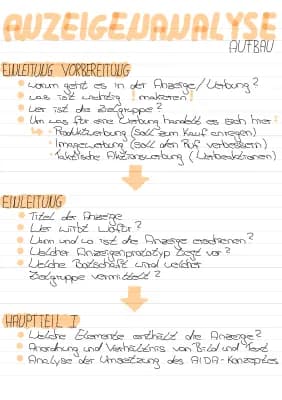 ANZEIGENANALYSE
AUFBAU
EINLEITUNG VORBEREITUNG
• worum geht es in der Anzeige/Werbung?
• was ist wichtig ! markieren !
• wer ist die Zielgruppe?
• Um was für eine Werbung handelt es sich hier:
↳ • Produktwerbung (soll zum Kauf anregen)
• Imagewerbung (soll den Ruf verbessern)
• Taktische Aktionswerbung (Werbeaktionen)
EINLEITUNG
• Titel der Anzeige
• Wer wirbt wofür?
• Wann und wo ist die Anzeige erschienen?
• Welcher Anzeigenprototyp liegt vor?
• Welche Botschaft und welcher
Zielgruppe vermittelt?
HAUPTTEIL I
• Welche Elemente enthält die Anzeige?
• Anordnung und Verhältnis von Bild und Text
• Analyse der Umsetzung des AIDA-Konzeptes